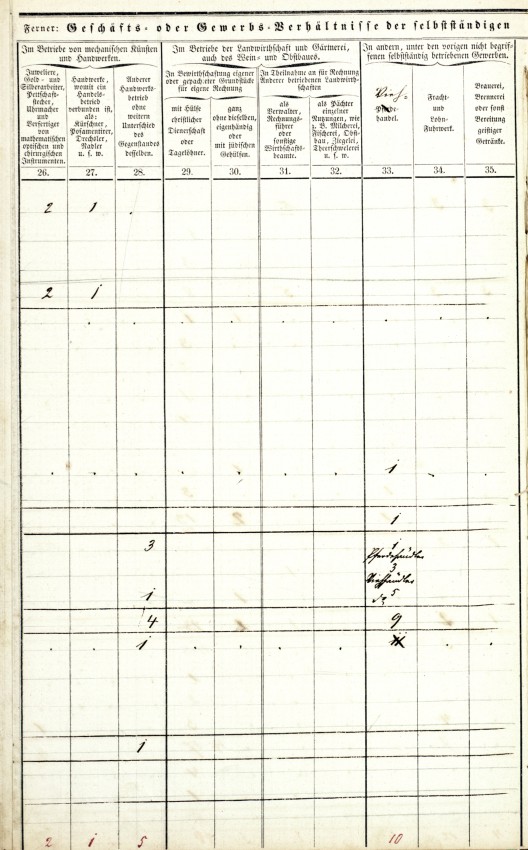 Ferner: Geschäfts- oder Gewerbs-Verhältnisse der selbstständigen
Im Betriebe von mechanischen Künsten
und Handwerken.
Im Betriebe der Landwirthschaft und Gärtnerei,
auch des Wein- und Obstbaues.
In andern, unter den vorigen nicht begrif-
fenen selbstständig betriebenen Gewerben.
Juweliere,
Gold- und
Silberarbeiter,
Pettschaft-
stecher,
Uhrmacher
und
Verfertiger
von
mathematischen
optischen und
chirurgischen
Instrumenten.
Handwerke,
womit ein
Handels-
betrieb
verbunden ist,
als:
Kürschner,
Posamentirer,
Drechsler,
Nadler
u. s. w.
Anderer
Handwerks-
betrieb
ohne
weitern
Unterschied
des
Gegenstandes
desselben.
In Bewirthschaftung eigener
oder gepachteter Grundstücke
für eigene Rechnung
mit Hülfe
christlicher
Dienerschaft
oder
Tagelöhner.
ganz
ohne dieselben,
eigenhändig
oder
mit jüdischen
Gehülfen.
In Theilnahme an für Rechnung
Anderer betriebenen Landwirth-
schaften
als
Verwalter,
Rechnungs-
führer
oder
sonstige
Wirthschafts-
beamte.
als Pächter
einzelner
Nutzungen, wie
z. B. Milcherei,
Fischerei, Obst-
bau, Ziegelei,
Theerschwelerei
u. s. w.
Vieh-
Pferde-
handel.
Fracht-
und
Lohn-
Fuhrwerk.
Brauerei,
Brennerei
oder sonst
Bereitung
geistiger
Getränke.
26. 27. 28. 29. 30. 31. 32. 33. 34. 35.
2 1
2 1
1
1
3 1
Pferdehändler
3
Viehhändler
1 do 5
4 9
1 11
1
2 1 5 10